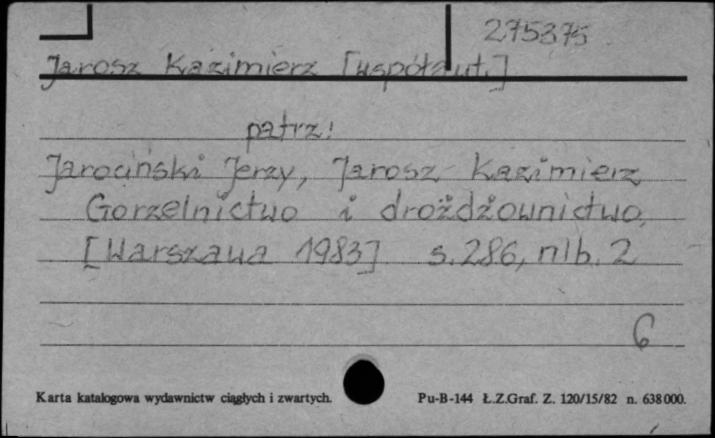 275375
Jarosz Kazimierz [współaut.]
patrz:
Jarociński Jerzy, Jarosz Kazimierz
Gorzelnictwo i drożdżownictwo.
[Warszawa 1983] s. 286, nlb. 2
6
Karta katalogowa wydawnictw ciągłych i zwartych. Pu-B-144 Ł.Z.Graf. Z. 120/15/82 n. 638000.